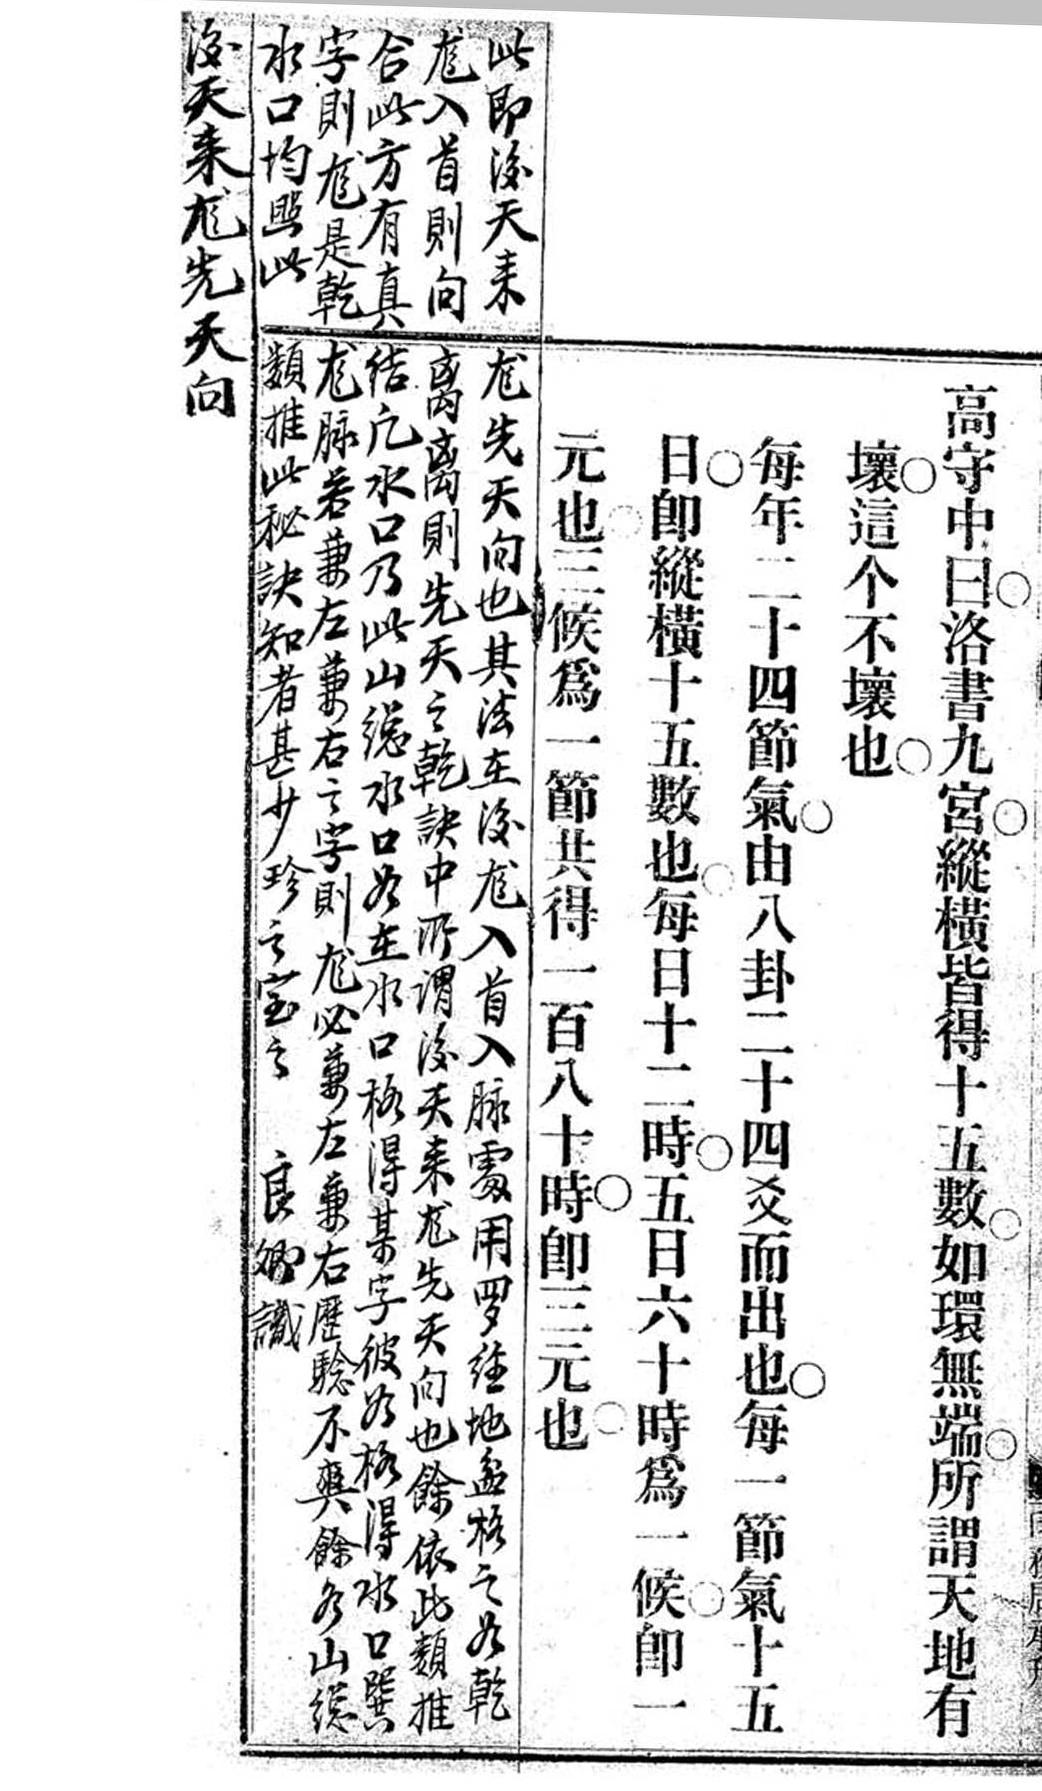 高守中曰洛書九宮縱橫皆得十五數如環無端所謂天地有
壞這个不壞也
每年二十四節氣由八卦二十四爻而出也每一節氣十五
日卽縱橫十五數也每日十二時五日六十時爲一候卽一
元也三候爲一節共得一百八十時卽三元也
此即後天来龙先天向也其法在後龙入首入脉處用罗经地盆格之如乾
龙入首則向离离則先天之乾訣中所谓後天来龙先天向也餘依此類推
合此方有真结凡水口乃此山總水口如在水口格得某字彼如格得水口巽
字則龙是乾龙脉若兼左兼右之字則龙必兼左兼右歷驗不爽餘各山總
水口均照此類推此秘訣知者甚少珍之宝之 良卿識
後天来龙先天向